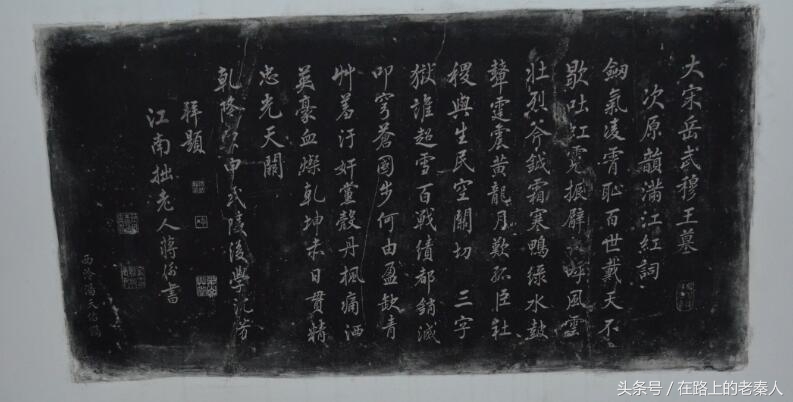 大宋岳武穆王墓
次原韻滿江紅詞
劒氣凌霄恥百世戴天不
歇吐虹霓振臂一呼風雲
壯烈斧鉞霜寒鴨綠水鼓
鼙霆震黃龍月歎孤臣社
稷與生民空關切 三字
獄誰超雪百戰績都銷滅
叩穹蒼國步何由盈缺青
艸羞汙奸黨殼丹楓痛洒
英豪血燦乾坤赤日貫精
忠光天闕
乾隆申武陵後學沈芳
拜題
江南拙老人蔣衡書
西泠馮天佑鐫
头条号 / 在路上的老秦人